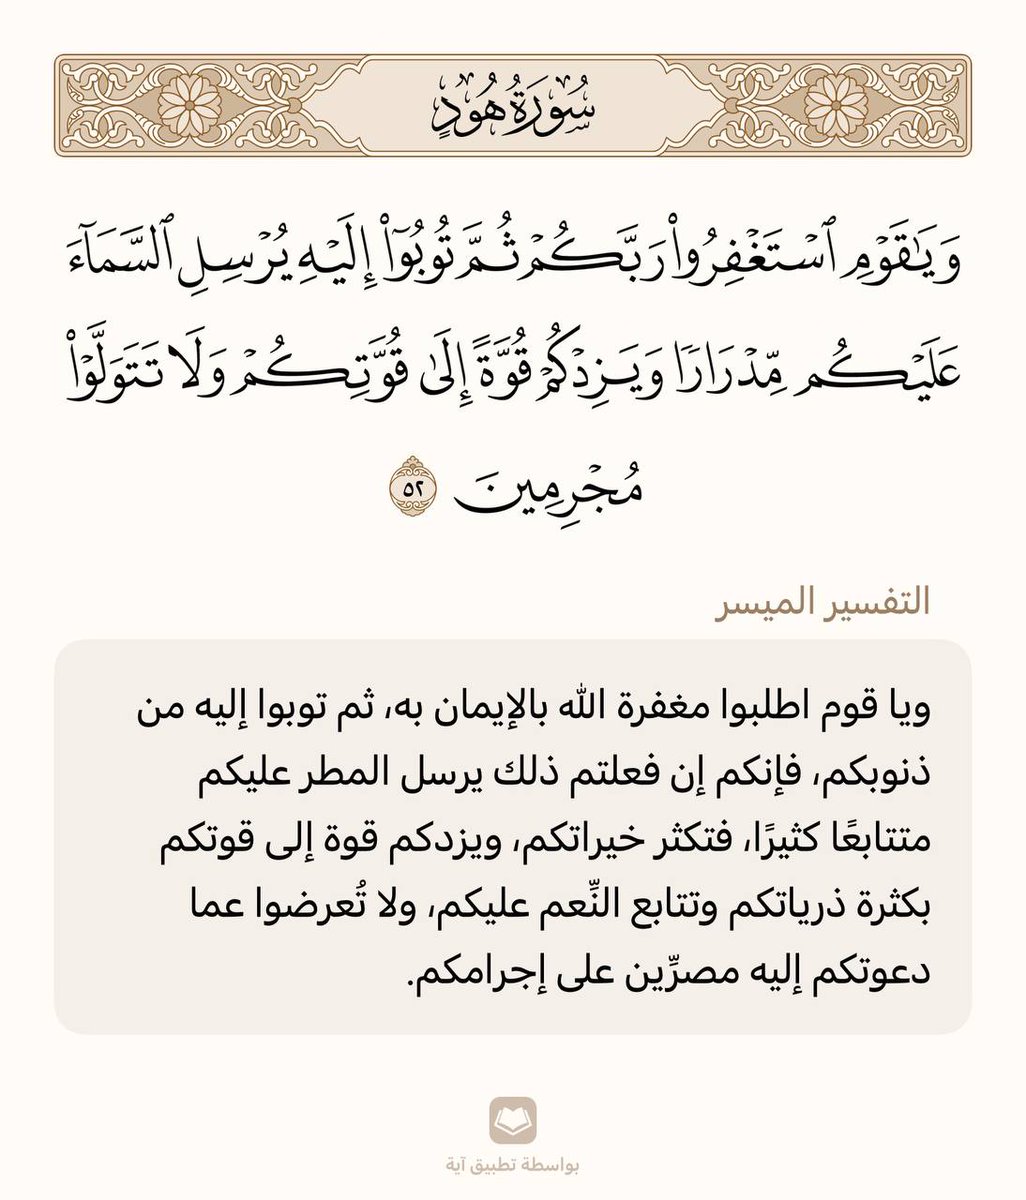 سُورَةُ هُودٍ
وَيَٰقَوْمِ ٱسْتَغْفِرُوا۟ رَبَّكُمْ ثُمَّ تُوبُوٓا۟ إِلَيْهِ يُرْسِلِ ٱلسَّمَآءَ
عَلَيْكُم مِّدْرَارًا وَيَزِدْكُمْ قُوَّةً إِلَىٰ قُوَّتِكُمْ وَلَا تَتَوَلَّوْا۟
مُجْرِمِينَ ٥٢
التفسير الميسر
ويا قوم اطلبوا مغفرة الله بالإيمان به، ثم توبوا إليه من
ذنوبكم، فإنكم إن فعلتم ذلك يرسل المطر عليكم
متتابعًا كثيرًا، فتكثر خيراتكم، ويزدكم قوة إلى قوتكم
بكثرة ذرياتكم وتتابع النِّعم عليكم، ولا تُعرضوا عما
دعوتكم إليه مصرِّين على إجرامكم.
بواسطة تطبيق آية